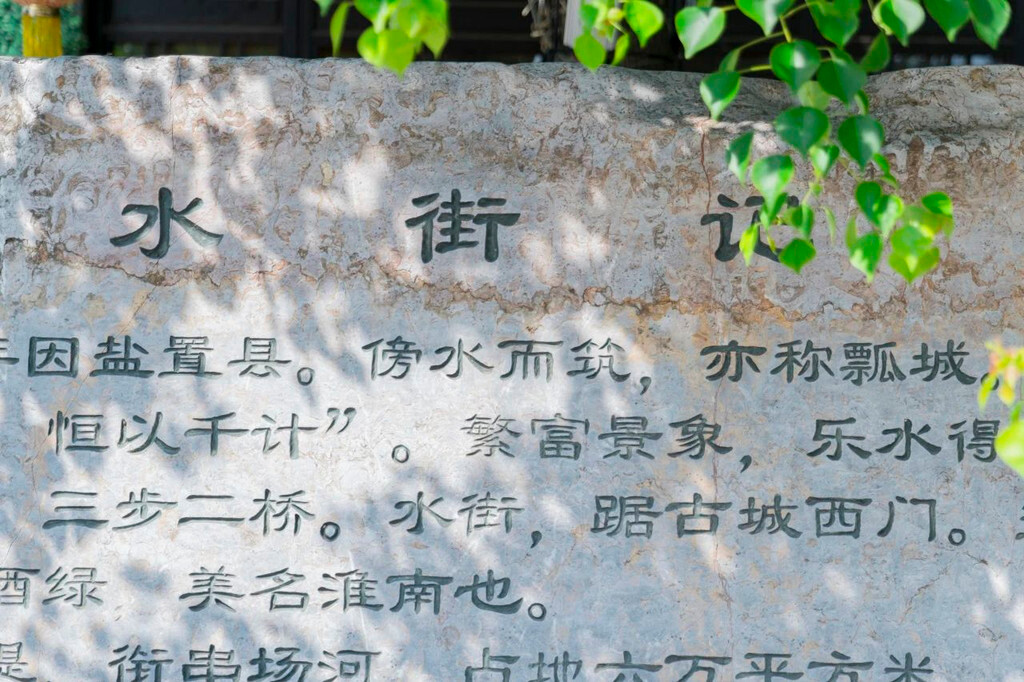 水街记
因盐置县。傍水而筑，亦称瓢城，
恒以千计”。繁富景象，乐水得
三步二桥。水街，踞古城西门。
酒绿 美名淮南也。
是 衔串场河 占地六万平方米